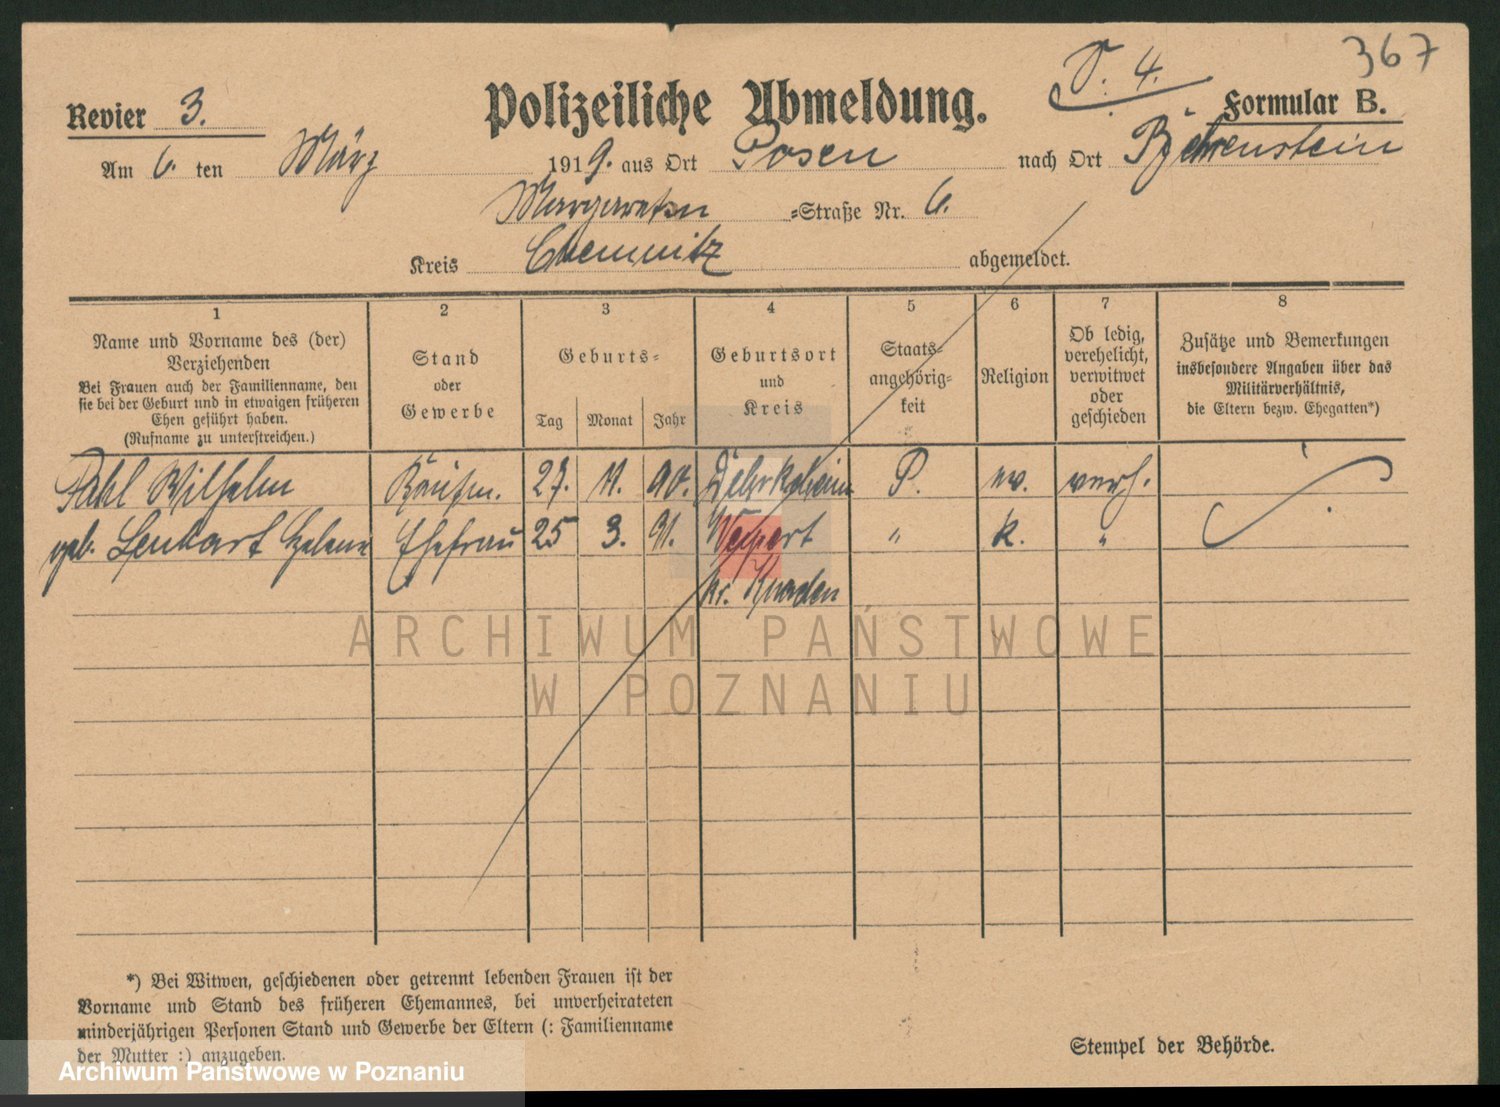 367
P. 4.
Revier 3.
Polizeiliche Abmeldung.
Formular B.
Am 6. ten März 1919. aus Ort Posen nach Ort
Margareten =Straße Nr. 6.
Kreis Chemnitz abgemeldet.
1 2 3 4 5 6 7 8
Name und Vorname des (der)
Verziehenden
Bei Frauen auch der Familienname, den
sie bei der Geburt und in etwaigen früheren
Ehen geführt haben.
(Rufname zu unterstreichen.)
Stand
oder
Gewerbe
Geburts-
Tag Monat Jahr
Geburtsort
und
Kreis
Staats-
angehörig-
keit
Religion
Ob ledig,
verehelicht,
verwitwet
oder
geschieden
Zusätze und Bemerkungen
insbesondere Angaben über das
Militärverhältnis,
die Eltern bezw. Ehegatten*)
Pahl Wilhelm Kaufm. 27. 11. 90. P. ev. verh.
geb. Lenhart Helene Ehefrau 25 3. 91. Weipert " k. "
kr. Knaden
ARCHIWUM PAŃSTWOWE
W POZNANIU
*) Bei Witwen, geschiedenen oder getrennt lebenden Frauen ist der
Vorname und Stand des früheren Ehemannes, bei unverheirateten
minderjährigen Personen Stand und Gewerbe der Eltern (: Familienname
der Mutter :) anzugeben.
Stempel der Behörde.
Archiwum Państwowe w Poznaniu